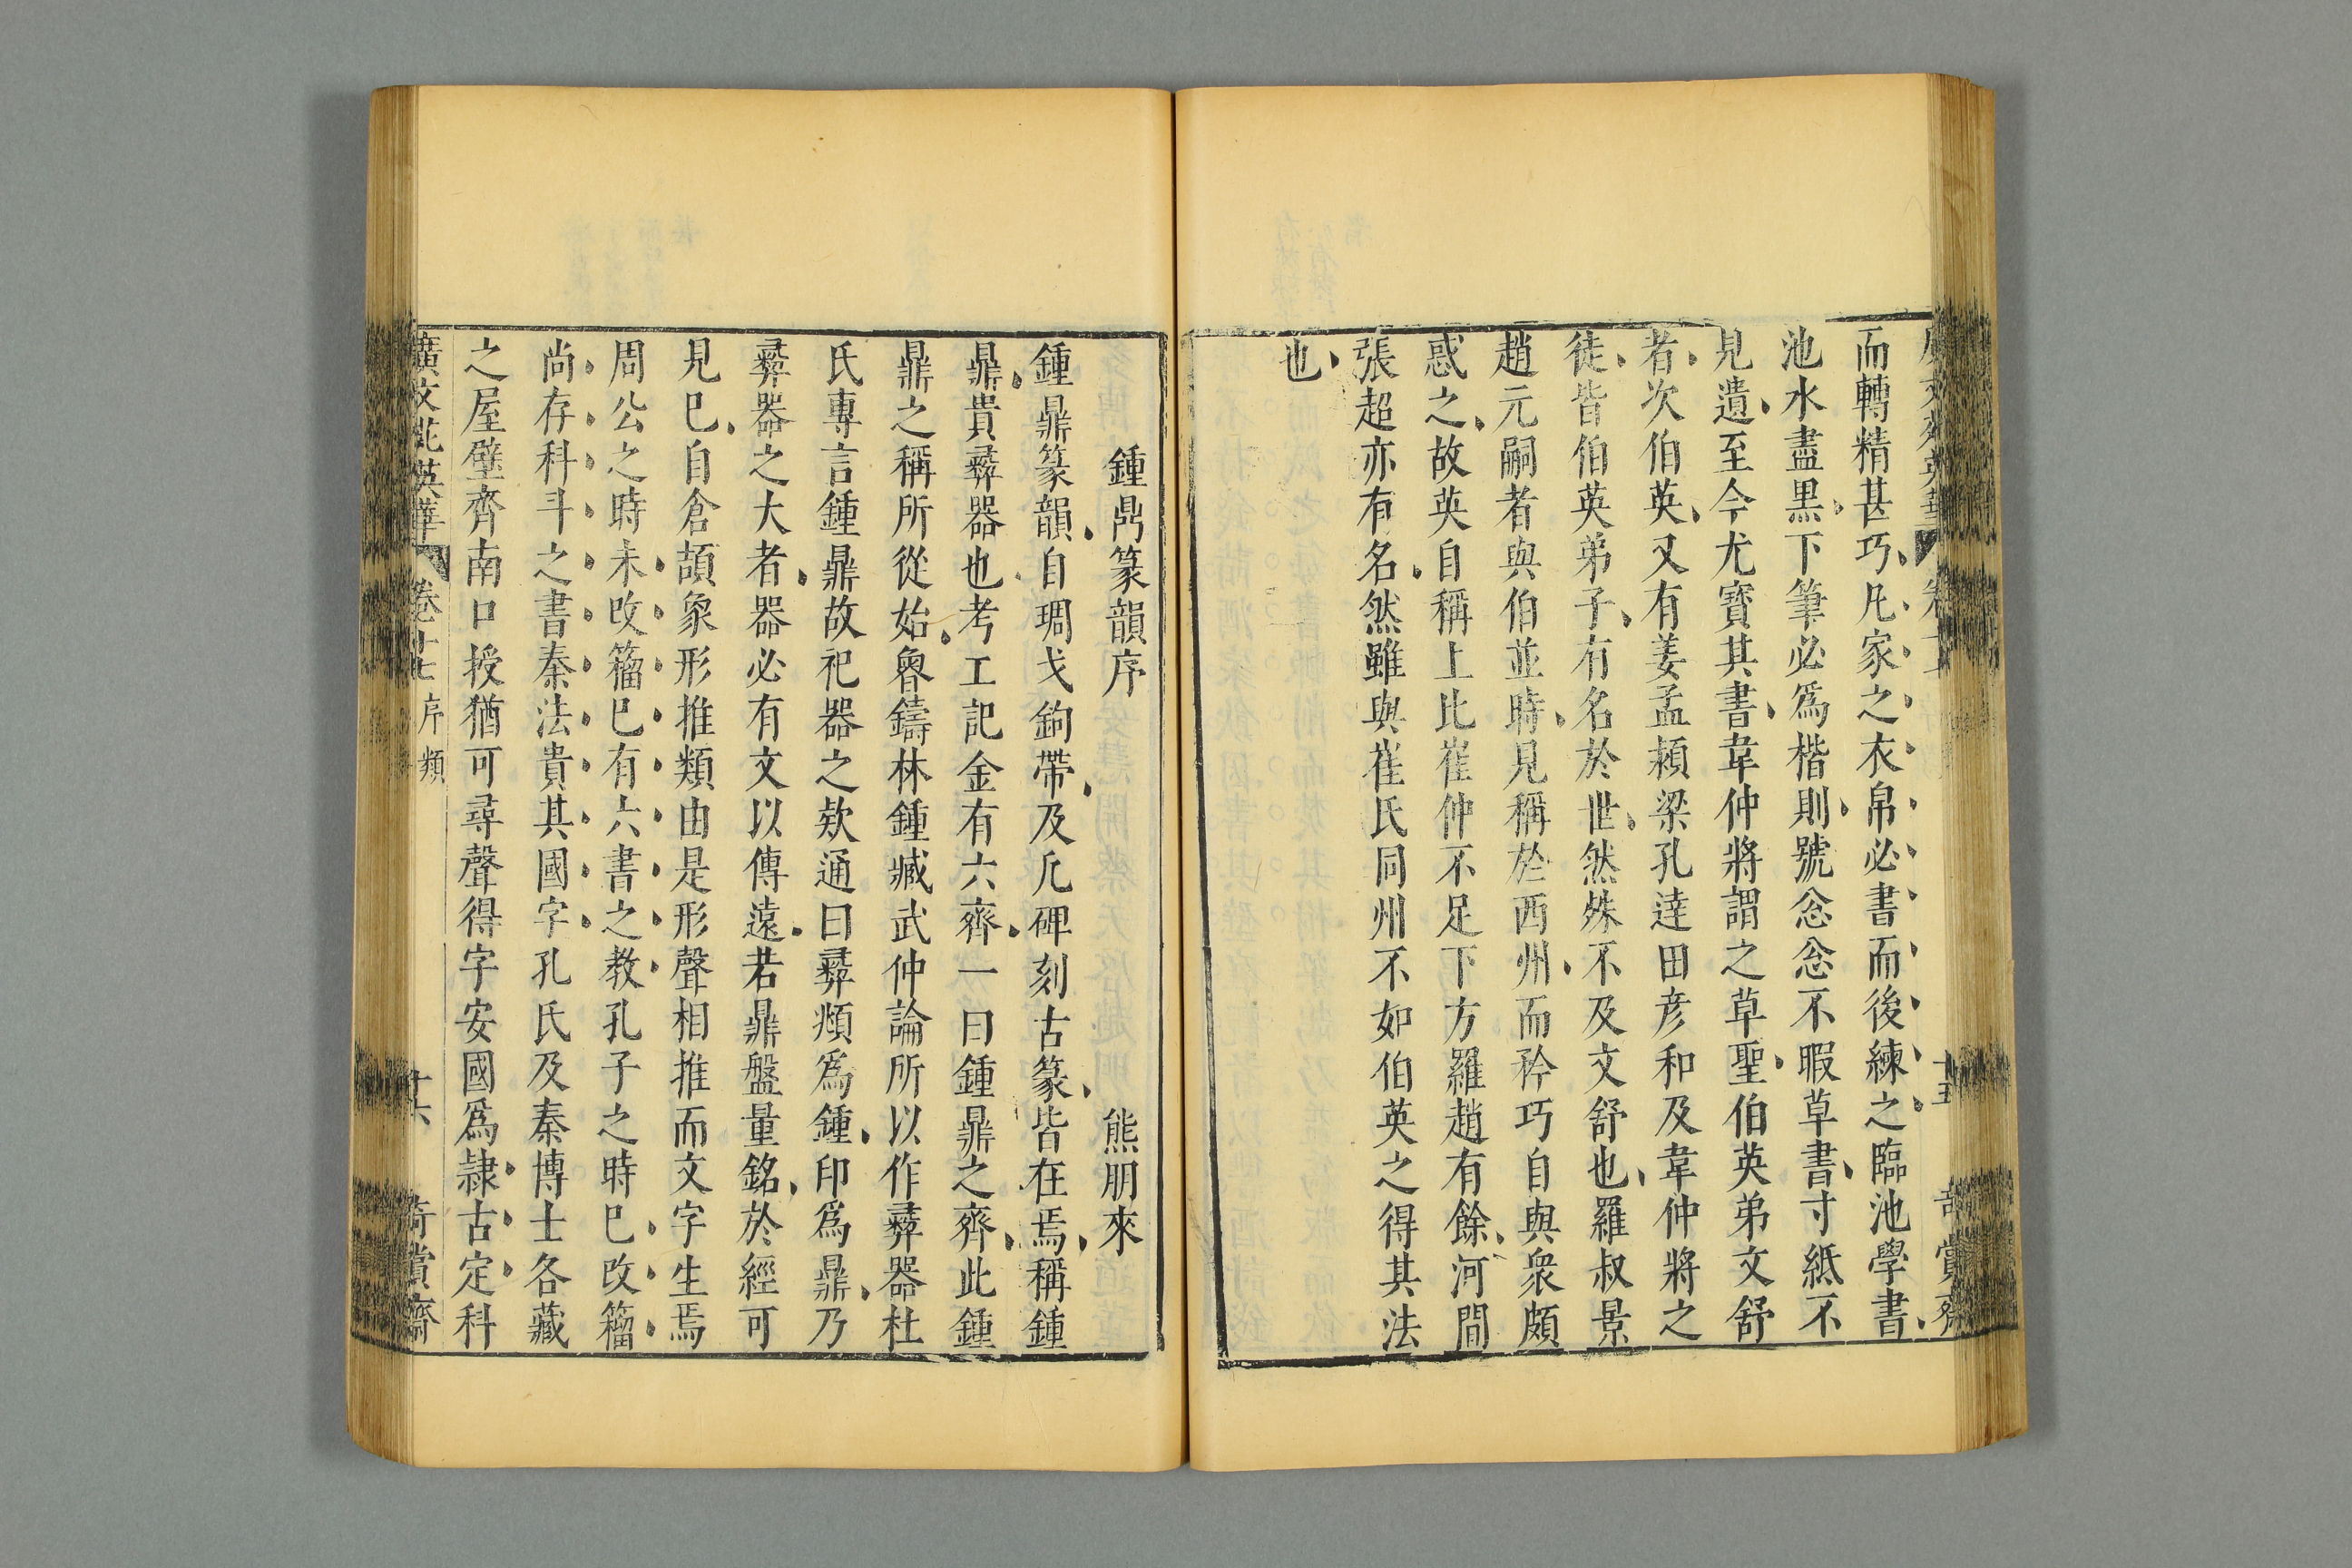 而轉精甚巧凡家之衣帛必書而後練之臨池學書
池水盡黒下筆必爲楷則號忩忩不暇草書寸紙不
見遺至今尤寳其書韋仲將謂之草聖伯英弟文舒
者次伯英又有姜孟穎梁孔逹田彦和及韋仲將之
徒皆伯英弟子有名於世然殊不及文舒也羅叔景
趙元嗣者與伯並時見稱於西州而矜巧自與衆頗
惑之故英自稱上比崔仲不足下方羅趙有餘河間
張超亦有名然雖與崔氏同州不如伯英之得其法
也
鍾鼎篆韻序 熊朋來
鍾鼎篆韻自琱戈鉤帶及凢碑刻古篆皆在焉稱鍾
鼎貴彛器也考工記金有六齊一曰鍾鼎之齊此鍾
鼎之稱所從始魯鑄林鍾臧武仲論所以作彛器杜
氏專言鍾鼎故祀器之欵通曰彛頫爲鍾卬爲鼎乃
彛器之大者器必有文以傳遠若鼎盤量銘於經可
見巳自倉頡象形推類由是形聲相推而文字生焉
周公之時未改籀巳有六書之教孔子之時巳改籀
尚存科斗之書秦法貴其國字孔氏及秦博士各藏
之屋壁齊南口授猶可尋聲得字安國爲隷古定科
廣文苑英華 卷十七 序類 十六 奇賞齋